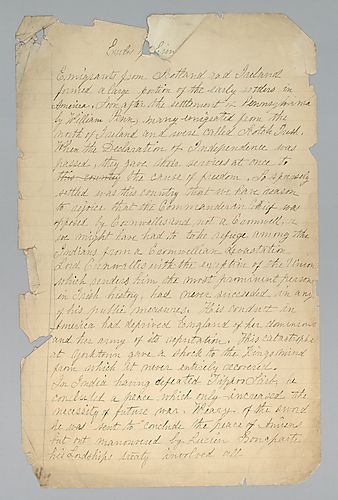 Emigrants from Scotland and Ireland
formed a large portion of the early settlers in
America. Soon after the settlement of Pennsylvania
by William Penn, many emigrated from the
north of Ireland and were called Scotch Irish.
When the Declaration of Independence was
passed, they gave their services at once to
this country the cause of freedom. So sparsely
settled was this country that we have reason
to rejoice that the Commander in Chief was
opposed by Cornwallis and not a Cromwell,
we might have had to take refuge among the
Indians from a Cromwellian devastation.
Lord Cornwallis with the exception of the Union
which renders him the most prominent person
in Irish history, had never succeeded in any
of his public measures. His conduct in
America had deprived England of her dominions
and her army of its reputation. This catastrophe
at Yorktown gave a shock to the King's mind
from which it never entirely recovered.
In India having defeated Tippoo Saib, he
concluded a peace which only increased the
necessity of future war. Weary of the sword
he was sent to conclude the peace of Amiens
but out manouvred by Lucien Bonaparte
his Lordships treaty involved all